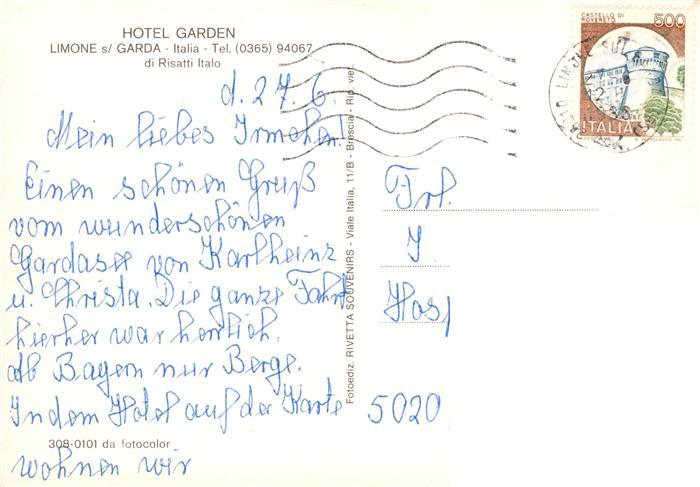 HOTEL GARDEN
LIMONE s/ GARDA - Italia - Tel. (0365) 94067
di Risatti Italo
d. 27. 6.
Mein liebes Irmchen!
Einen schönen Gruß
vom wunderschönen
Gardasee von Karlheinz
u. Christa. Die ganze Fahrt
hierher war herrlich.
ab Bayern nur Berge.
In dem Hotel auf der Karte
308-0101 da fotocolor
wohnen wir
Fotoediz. RIVETTA SOUVENIRS - Viale Italia, 11/B - Brescia - Rip. viet.
CASTELLO DI
ROVERETO
500
ITALIA
LIMONE SUL
Frl.
I
Hos
5020